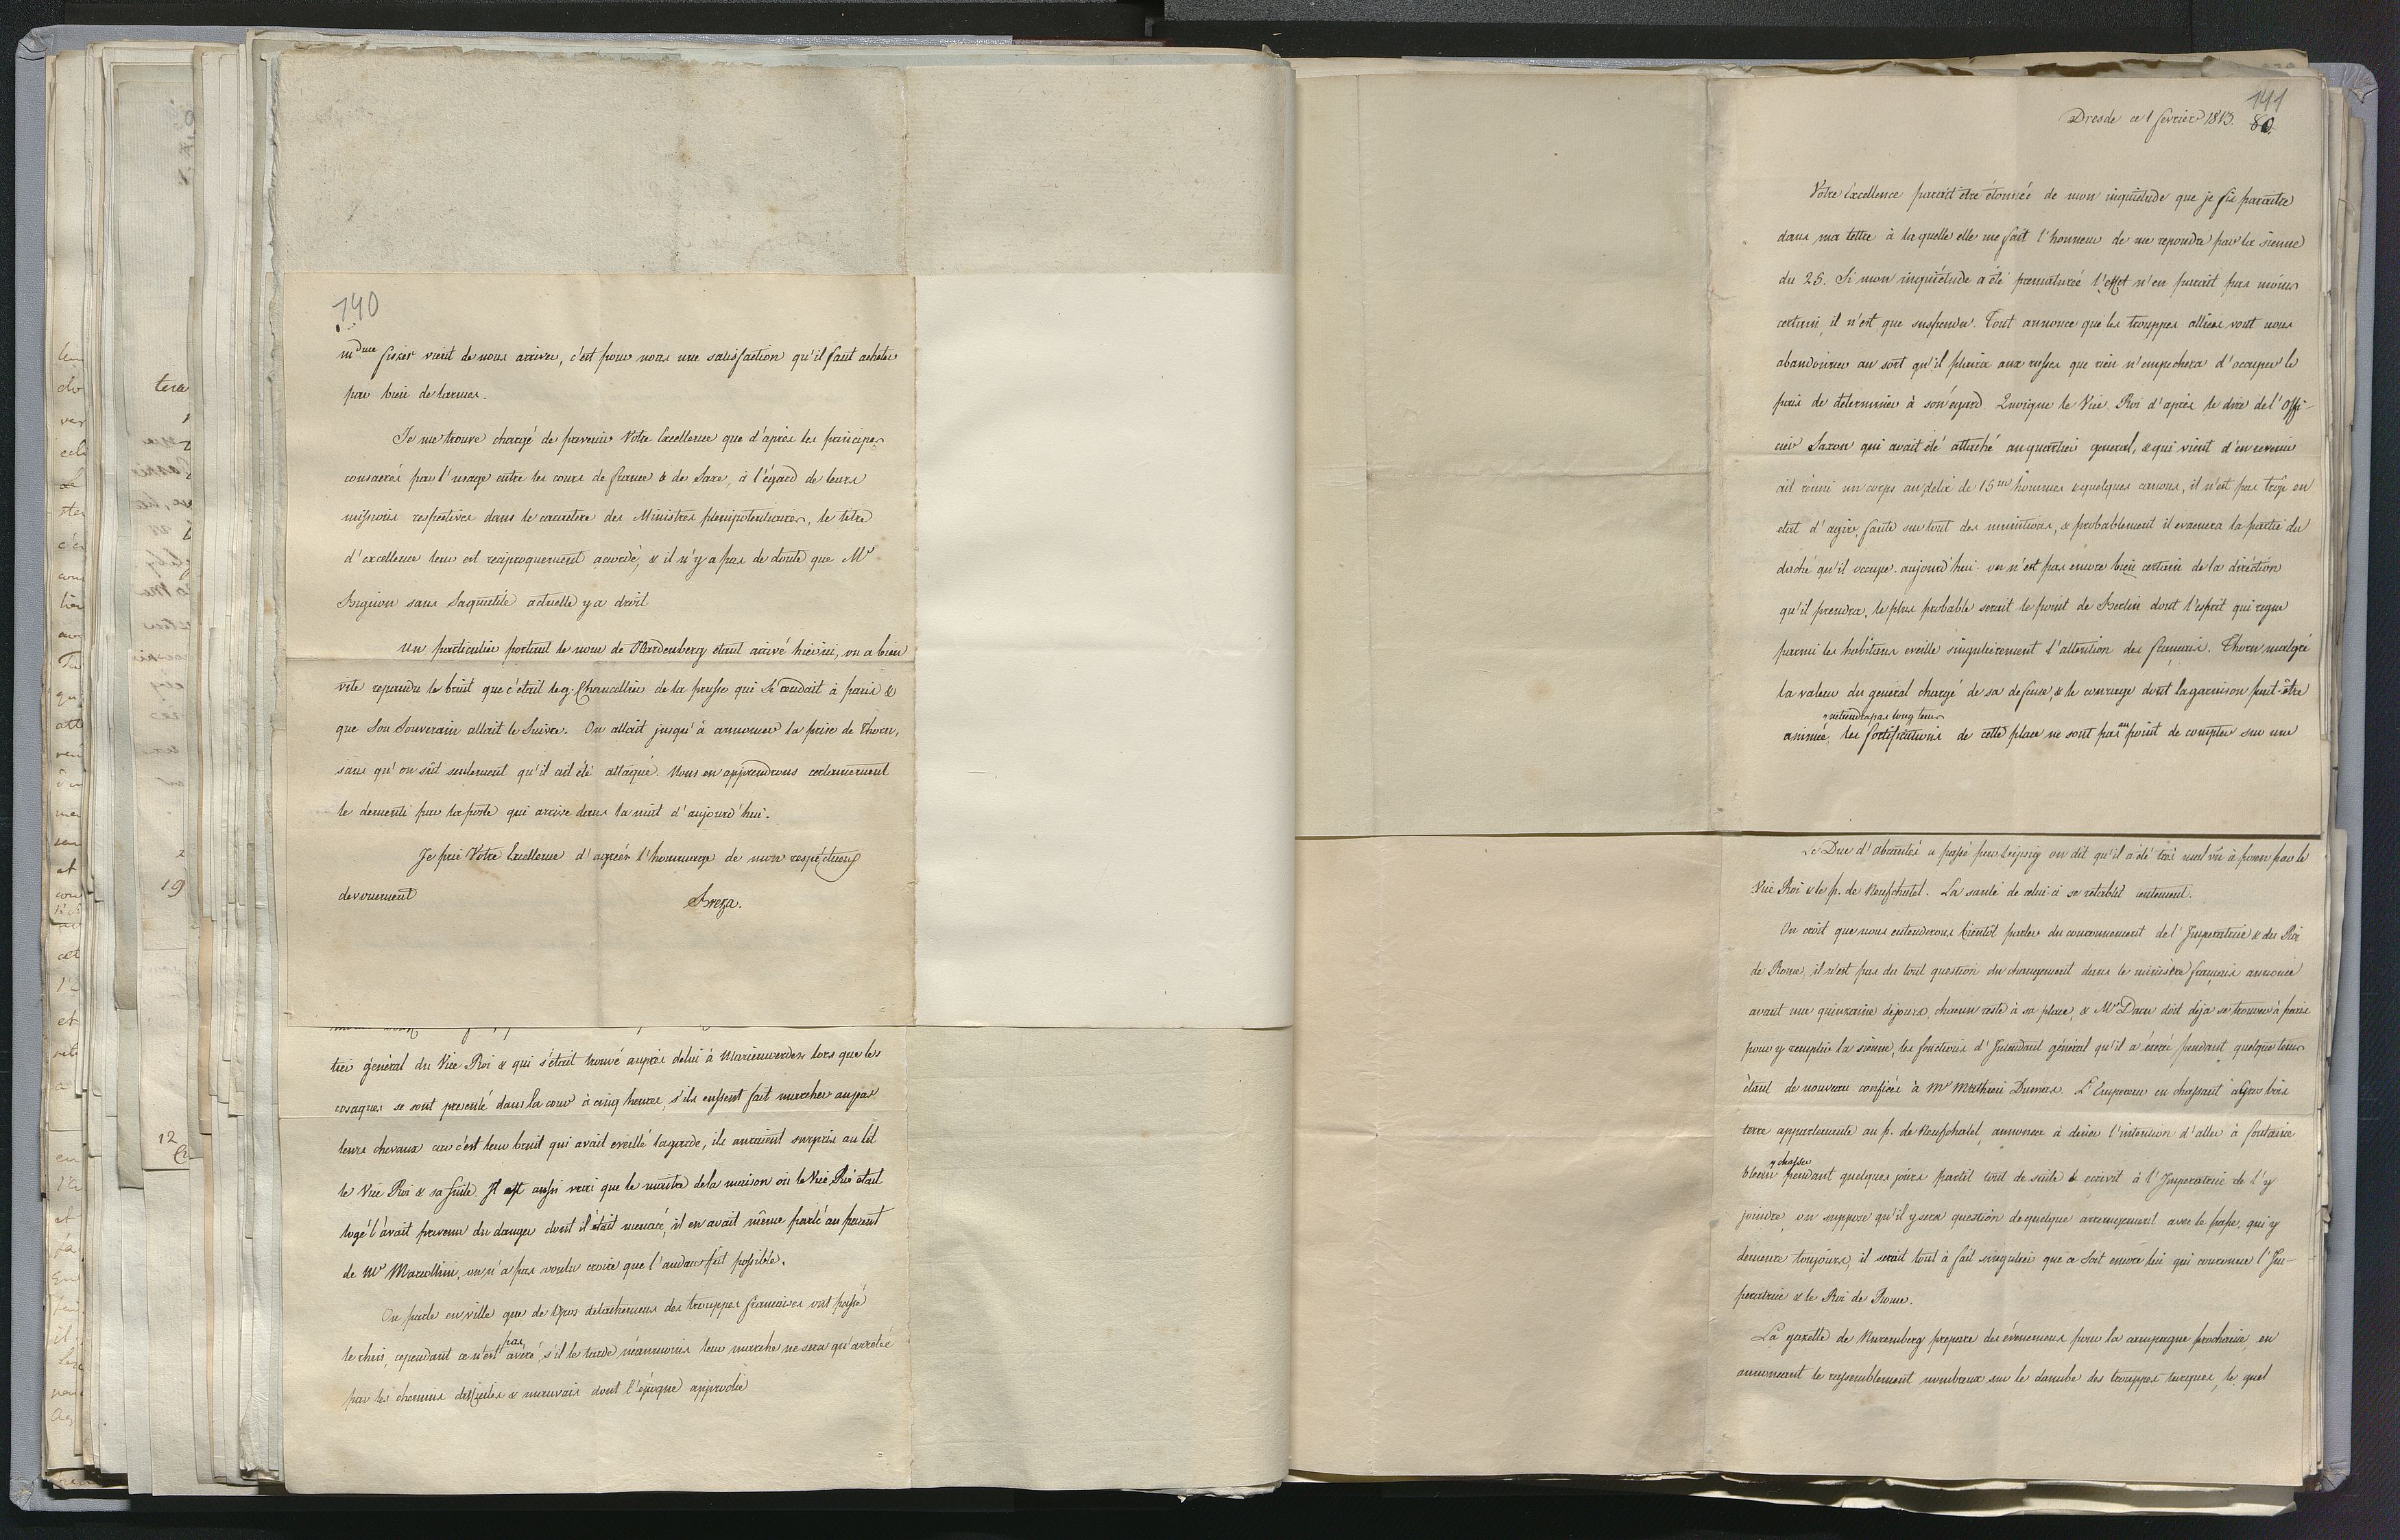 140
mdme fiszer vient de nous arriver, c'est pour nous une satisfaction qu'il faut acheter
par bien de larmes.
Je me trouve chargé de prevenir Votre Excellence que d'après les principes
consacrés par l'usage entre les cours de france & de Saxe, à l'égard de leurs
missions respectives dans le caractere des Ministres plenipotentiaires, le titre
d'excellence leur est reciproquement accordé, & il n'y a pas de doute que Mr
Bignon sans Saquitité actuelle y a droit
Un particulier portant le nom de Hardenberg etant arrivé hier ici, on a bien
vite repandu le bruit que c'etait le g. Chancellier de la prusse qui se rendait à paris &
que son Souverain allait le suivre. On allait jusqu'à annoncer la prise de Thorn,
sans qu'on sût seulement qu'il ait été attaqué. Nous en apprendrons certainement
le dementi par la poste qui arrive dans la nuit d'aujourd'hui.
Je prie Votre Excellence d'agréer l'hommage de mon respectueux
devouement
Breza.
tier général du Vice Roi & qui s'était trouvé auprès de lui à Marienwerder lors que les
cosaques se sont presenté dans la cour à cinq heures, s'ils eussent fait marcher au pas
leurs chevaux car c'est leur bruit qui avait eveillé la garde, ils auraient surpris au lit
le Vice Roi & sa suite. Il est aussi vrai que le maitre de la maison où le Vice Roi etait
logé l'avait prevenu du danger dont il était menacé, il en avait même parlé au parent
de Mr Marcollini, on n'a pas voulu croire que l'audace fut possible.
On parle en ville que de gros detachemens des trouppes francaises ont passé
le rhein, cependant ce n'est pas averé, s'il le tarde néanmoins leur marche ne sera qu'arretée
par les chemins difficiles & mauvais dont l'epoque approche
141
80.
Dresde ce 1 février 1813.
Votre Excellence parait etre étonnée de mon inquietude que je fis paraitre
dans ma lettre à la quelle elle me fait l'honneur de me repondre par la sienne
du 25. Si mon inquiétude a été prematurée l'effet n'en parait pas moins
certain, il n'est que suspendu. Tout annonce que les trouppes alliées vont nous
abandonner au sort qu'il plaira aux russes que rien n'empechera d'occuper le
pais de determiner à son égard. Quoique le Vice Roi d'après le dire de l'Offi-
cier Saxon qui avait été attaché au quartier general, & qui vient d'en revenir
ait réuni un corps au delà de 15m hommes & quelques canons, il n'est pas trop en
etat d'agir, faute sur tout des munitions, & probablement il evacuera la partie du
duché qu'il occupe aujourd'hui. on n'est pas encore bien certain de la diréction
qu'il prendra, le plus probable serait le point de Berlin dont l'esprit qui regne
parmi les habitans eveille singulierement l'attention des francais. Thorn malgré
la valeur du general chargé de sa defense, & le courage dont la garnison peut-être
animée ne tiendra pas long tems les fortifications de cette place ne sont pas au point de compter sur une
Le Duc d'abrantés a passé par Leipsig on dit qu'il a été très mal vu à posen par le
Vice Roi & le p. de Neufchatel. La santé de celui ci se retablit lentement.
On croit que nous entendrons bientôt parler du couronnement de l'Imperatrice & du Roi
de Rome, il n'est pas du tout question du changement dans le ministère francais annoncé
avant une quinzaine de jours, chacun reste à sa place, & Mr Daru doit deja se trouver à paris
pour y remplir la sienne, les fonctions d'Intendant général qu'il a exercé pendant quelque tems
étant de nouveau confiées à Mr Mathieu Dumas. L'Empereur en chassant à gros bois
terre appartenante au p. de Neufchatel, annoncea à diner l'intention d'aller à fontaine
bleau y chasser pendant quelques jours partit tout de suite & ecrivit à l'Imperatrice de l'y
joindre, on suppose qu'il y sera question de quelque arrengement avec le pape, qui y
demeure toujours, il serait tout à fait singulier que ce soit encore lui qui couronne l'Im-
peratrice & le Roi de Rome.
La gazette de Nuremberg prepare des évenemens pour la campagne prochaine, en
annoncant le rassemblement nombreux sur le danube des trouppes turques, le quel